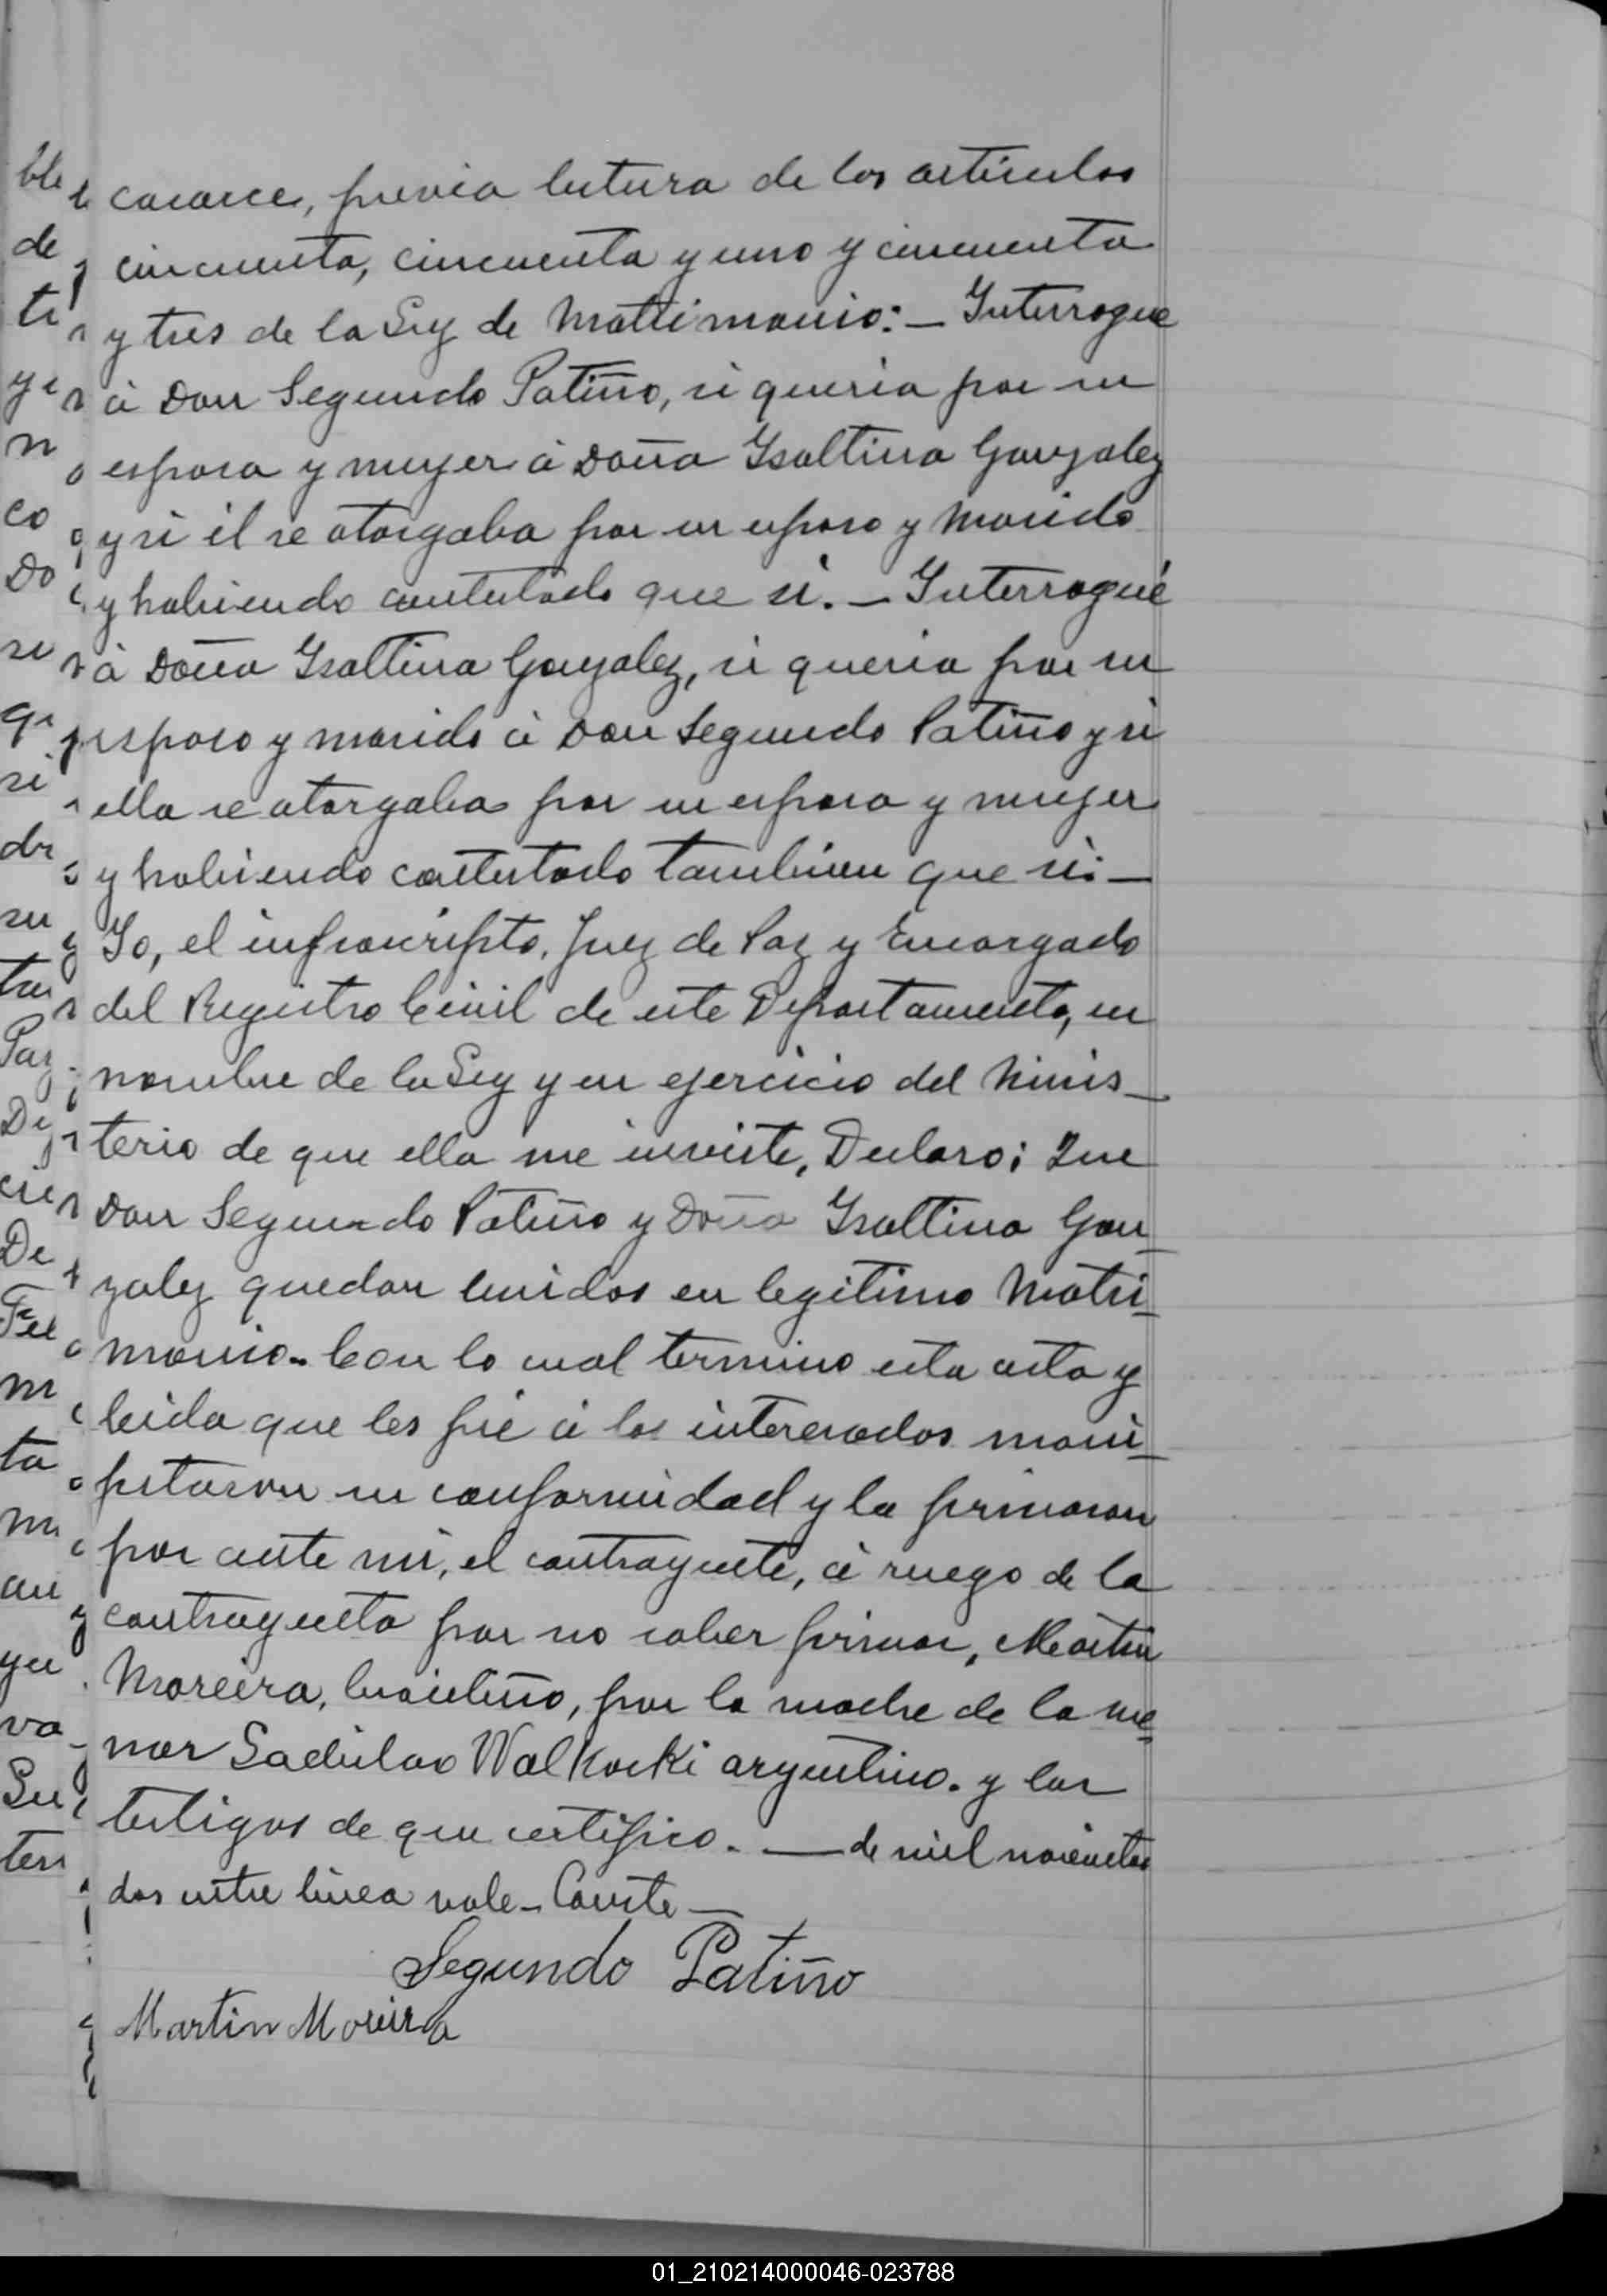 casarce, previa letura de los artículos
cincuenta, cincuenta y uno y cincuenta
y tres de la Ley de Matrimonio:— Interrogue
á Don Segundo Patiño, si queria por su
esposa y mujer á Doña Isaltina Gonzalez
y si él se otorgaba por su esposo y Marido
y habiendo contestado que si.— Interrogué
á Doña Isaltina Gonzalez, si queria por su
esposo y marido á Don Segundo Patiño y si
ella se otorgaba por su esposa y mujer
y habiendo contestado tambien que si:—
Yo, el infrascripto, Juez de Paz y Encargado
del Registro Civil de este Departamento, en
nombre de la Ley y en ejercicio del Minis-
terio de que ella me inviste, Declaro; Que
Don Segundo Patiño y Doña Isaltina Gon-
zalez quedan unidos en legítimo Matri-
monio.- Con lo cual termino esta acta y
leida que les fué á los interesados mani-
festaron su conformidad y la firmaron
por ante mi, el contrayente, á ruego de la
contrayente por no saber firmar, Martin
Moreira, brasileño, por la madre de la me-
nor Ladislao Walkoski argentino. y los
testigos de que certifico.— de mil novecientos
dos entre línea vale.- Conste—
Segundo Patiño
Martin Moreira
01_210214000046-023788